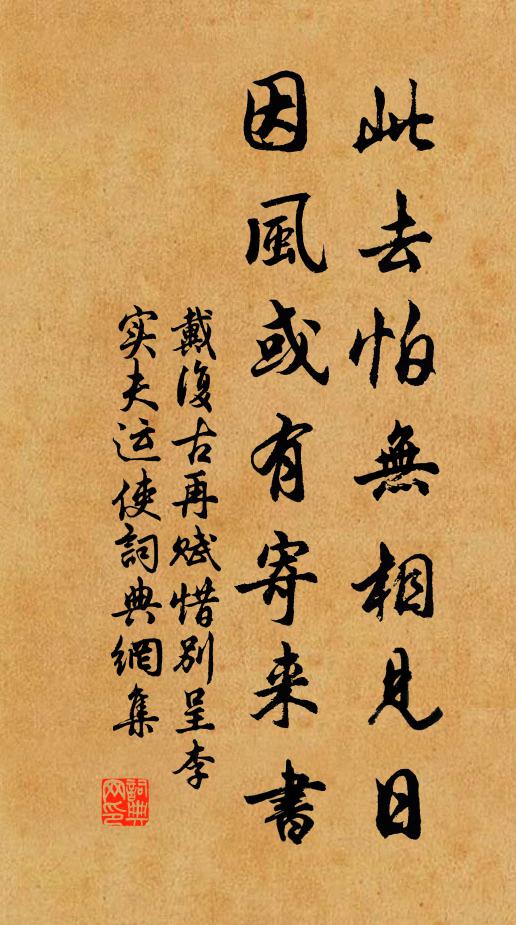 此去怕無相見日
因風或有寄来書
戴復古再赋惜別呈李
实夫运使詞典網集
詞典网印